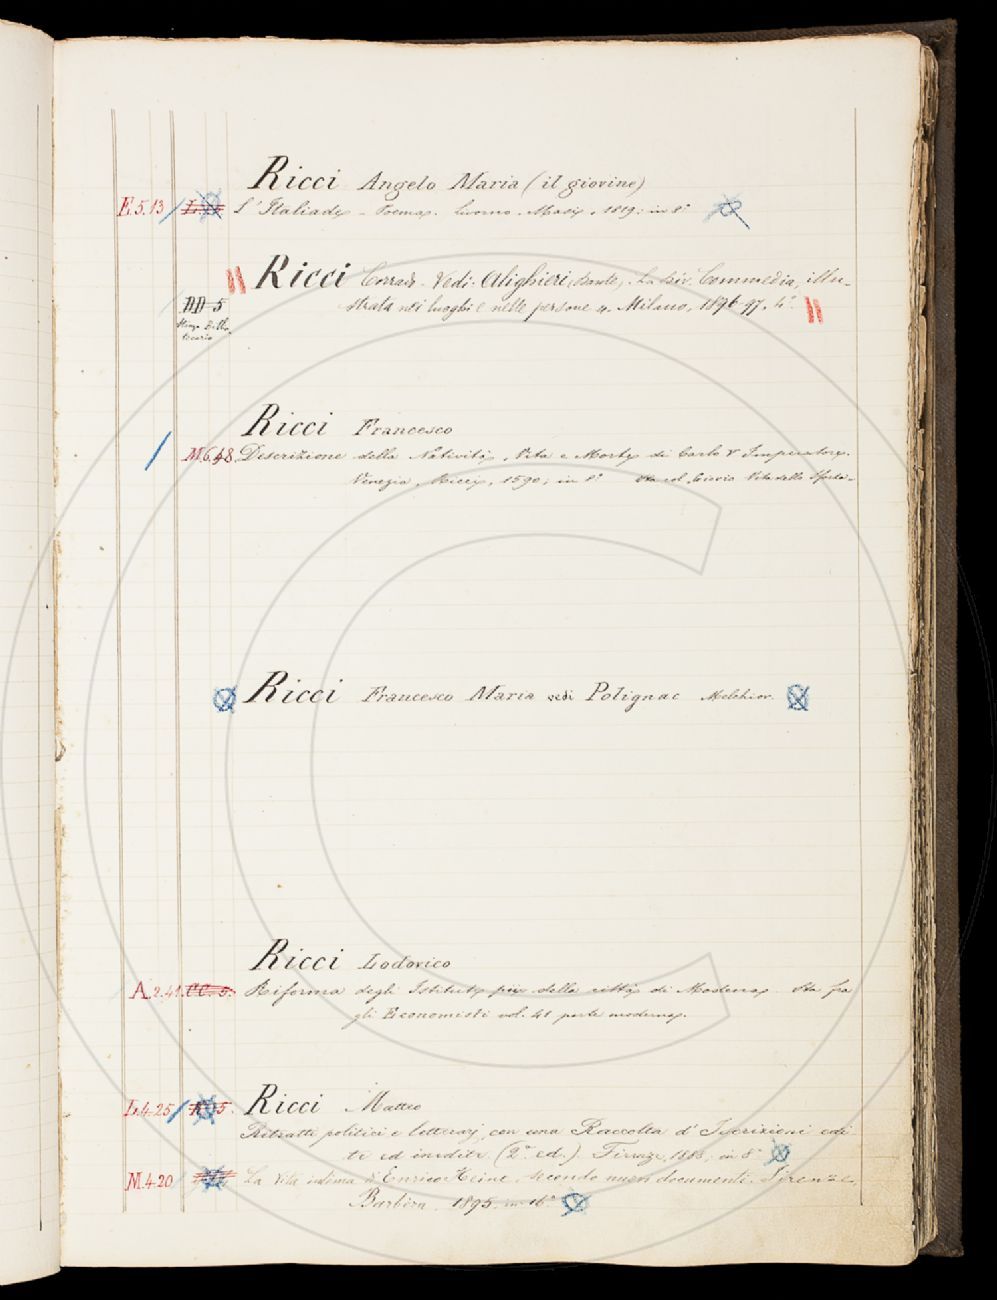 Ricci Angelo Maria (il giovine)
E.5.13 L'Italiade - Poema. Livorno, Masi, 1819; in 8°
Ricci Corrado - Vedi: Alighieri (Dante). La Div. Commedia, illu-
DD-5 strata nei luoghi e nelle persone. Milano, 1896-97, 4°.
Ricci Francesco
M.6.48 Descrizione della Natività, Vita e Morte di Carlo V Imperatore.
Venezia, 1590; in 8° Sta col Vita dello
Ricci Francesco Maria vedi Polignac Melchior.
Ricci Lodovico
A.2.41. CC. 5. Riforma degli Istituti pii della città di Modena. Sta fra
gli Economisti vol. 41 parte moderna.
L.4.25 5. Ricci Matteo
Ritratti politici e letterarj con una Raccolta d'Iscrizioni edi-
te ed inedite (2ª ed.) Firenze, in 8°
M.4.20 La Vita intima d'Enrico Heine, secondo nuovi documenti. Firenze,
Barbèra, 1895, in 16°